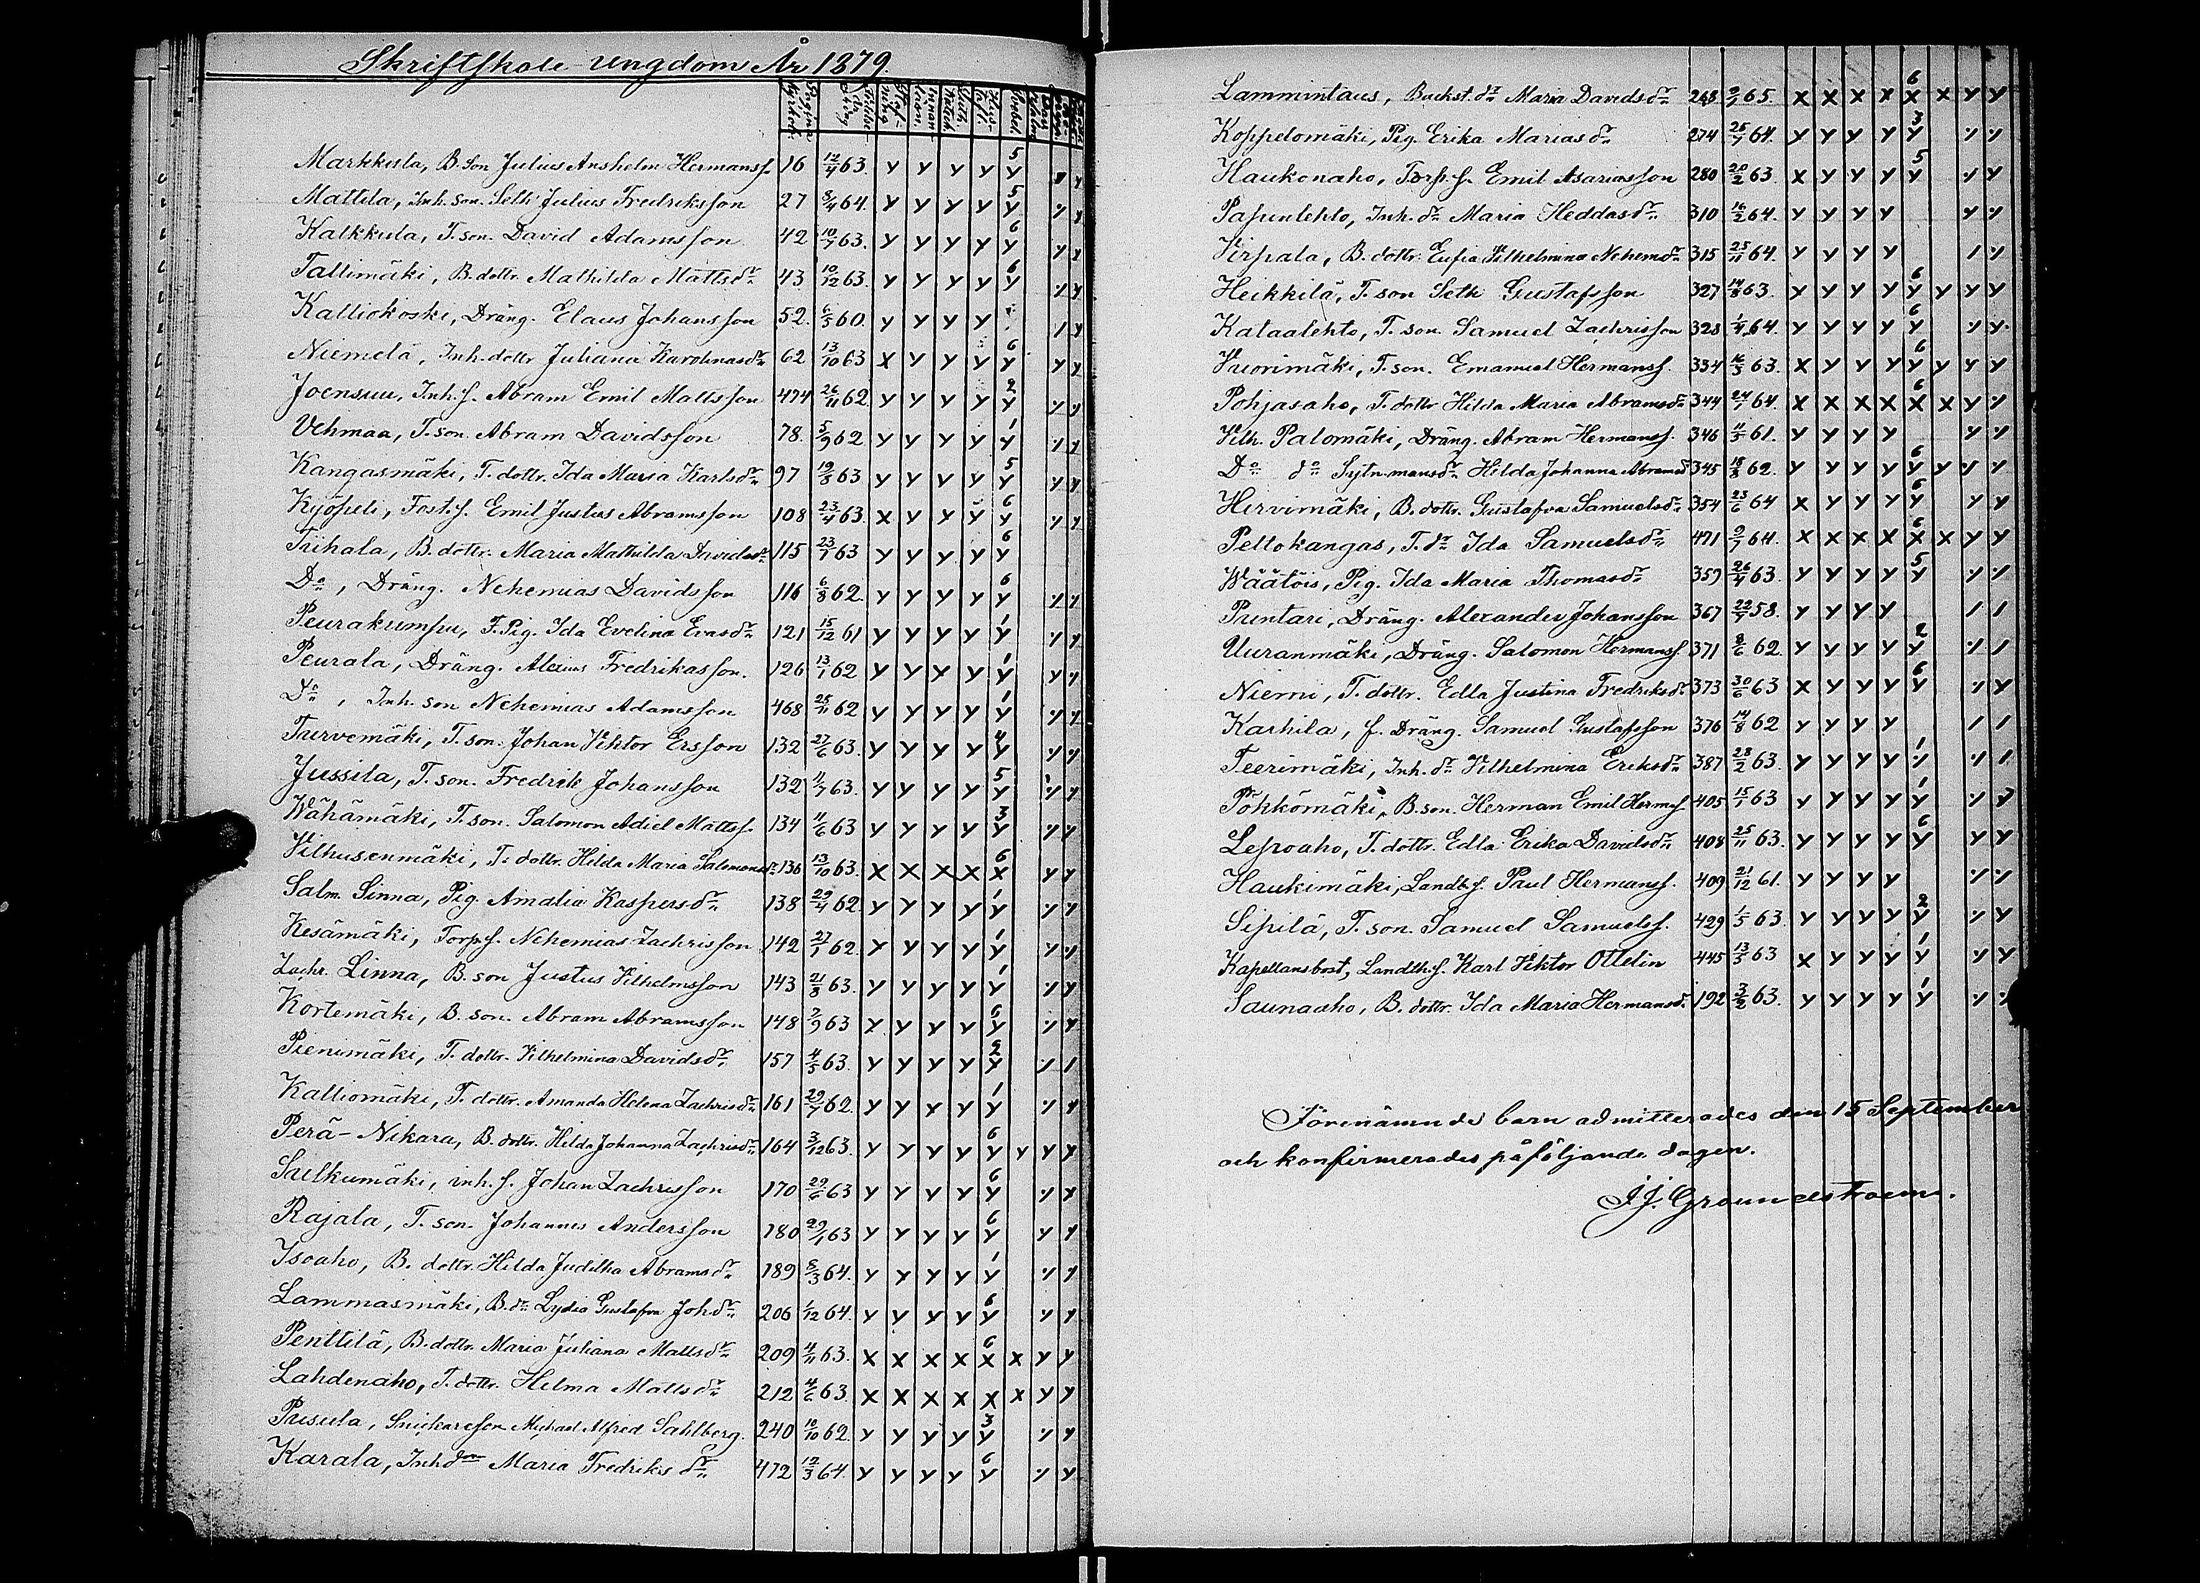 Skriftskole-ungdom År 1879.
Markkula, B. son Julius Anshelm Hermanss. 16 12/4 63. y y y y 5 y
Mattila, Inh. son. Seth Julius Fredriksson 27 8/4 64. y y y y 5 y
Kalkkula, T. son. David Adamsson 42 10/7 63. y y y y 6 y
Tallimäki, B. dottr. Mathilda Mattsdr. 43 10/12 63. y y y y 6 y
Kalliokoski, Dräng. Elaus Johansson 52. 6/5 60. y y y y
Niemelä, Inh. dottr Juliana Karolinasdr. 62 13/10 63 x y y y 6 y
Joensuu, Inh. s. Abram Emil Mattsson 474 26/11 62. y y y y 2 y
Vehmaa, T. son. Abram Davidsson 78. 5/9 62 y y y y 1 y
Kangasmäki, T. dottr. Ida Maria Karlsdr. 97 19/8 63 y y y y 5 y
Kyöpeli, Fost. s. Emil Justus Abramsson 108 23/4 63. x y y y 6 y
Tiihala, B. dottr. Maria Mathilda Davidsdr. 115 23/1 63 y y y y 6 y
Do, Dräng. Nehemias Davidsson 116 6/8 62. y y y y 6 y
Peurakumpu, F. Pig. Ida Evelina Evasdr. 121 15/12 61 y y y y 1 y
Peurala, Dräng. Alexius Fredrikasson. 126 13/1 62 y y y y 1 y
Do, Inh. son Nehemias Adamsson 468 25/11 62 y y y y 1 y
Turvemäki, T. son. Johan Viktor Ersson 132 27/6 63. y y y y 4 y
Jussila, T. son. Fredrik Johansson 132 11/7 63. y y y y 5 y
Wähämäki, T. son. Salomon Adiel Mattss. 134 11/6 63 y y y y 3 y
Vilhusenmäki, T. dottr. Hilda Maria Salomonsdr. 136 13/10 63. x x x x 6 x y y
Salm. Linna, Pig. Amalia Kaspersdr. 138 29/4 62. y y y y 1 y
Kesämäki, Torp. s. Nehemias Zachrisson 142 27/1 62. y y y y 1 y
Zachr. Linna, B. son Justus Vilhelmsson 143 21/8 63. y y y y 1 y
Kortemäki, B. son. Abram Abramsson 148 2/9 63 y y y y 6 y
Pienimäki, T. dottr. Vilhelmina Davidsdr. 157 4/5 63. y y y y 2 y
Kalliomäki, T. dottr. Amanda Helena Zachrisdr. 161 29/7 62. y y y y 1 y
Perä-Nikara, B. dottr. Hilda Johanna Zachrisdr. 164 3/12 63. y y y y 6 y y y y
Sulkumäki, inh. s. Johan Zachrisson 170 29/6 63 y y y y 6 y
Rajala, T. son. Johannes Andersson 180 29/1 63 y y y y 6 y y y
Isoaho, B. dottr. Hilda Juditha Abramsdr. 189 5/3 64. y y y y 1 y
Lammasmäki, B. dr. Lydia Gustafva Johdr. 206 1/12 64. y y y y 6 y
Penttilä, B. dottr. Maria Juliana Mattsdr. 209 11/11 63. x x x x 6 x x y y
Lahdenaho, T. dottr. Hilma Mattsdr. 212 4/6 63. x x x x x x y y
Pusula, Snickareson Michael Alfred Sahlberg. 240 10/10 62. y y y y 3 y
Karala, Inhdr Maria Fredriksdr. 472 12/3 64. y y y y 6 y
Lammintaus, Backst. dr. Maria Davidsdr. 248 9/1 65. x x x x 6 x x y y
Koppelomäki, Pig. Erika Mariasdr. 274 25/7 64. y y y y 3 y
Haukonaho, Torp. s. Emil Asariasson 280 20/2 63. x y y y 5 y
Pajunlehto, Inh. dr. Maria Heddasdr. 310 16/2 64. y y y y
Virpala, B. dottr. Eufia Vilhelmina Nehemdr. 315 25/11 64. y y y y
Heikkilä, T. son Seth Gustafsson 327 14/8 63. y y y y 6 y y y y
Kataalehto, T. son. Samuel Zachrisson 328 1/4 64. y y y y 6 y
Vuorimäki, T. son. Emanuel Hermanss. 334 16/5 63. x y y y 6 y y y y
Pohjasaho, T. dottr Hilda Maria Abramsdr. 344 24/1 64. x x x x 6 x x y
Vilh. Palomäki, Dräng. Abram Hermanss. 346 11/5 61. y y y y
Do do Sytn.mansdr. Hilda Johanna Abramsd. 345 18/8 62. y y y y 6 y y
Hirvimäki, B. dottr. Gustafva Samuelsdr. 354 23/6 64 x y y y 6 y y y
Peltokangas, T. dr. Ida Samuelsdr. 471 9/7 64. x x x x 6 x x y y
Wäätöis, Pig. Ida Maria Thomasdr. 359 26/4 63. y y y y 5 y
Puntari, Dräng. Alexander Johansson 367 22/7 58. y y y y 1 1
Uuranmäki, Dräng. Salomon Hermanss. 371 8/6 62. y y y y 2 y
Niemi, T. dottr. Edla Justina Fredriksdr. 373 30/6 63 x y y y 6 y
Karhila, f. Dräng. Samuel Gustafsson 376 14/8 62 y y y y 1 1
Teerimäki, Inh. dr. Vilhelmina Eriksdr. 387 28/2 63. y y y y 1
Pökkömäki, B. son. Herman Emil Hermss. 405 15/1 63 y y y y 1 y
Lepoaho, T. dottr. Edla Erika Davidsdr. 408 25/11 63. y y y y 6 y y y
Haukimäki, Landb. s. Paul Hermanss. 409 21/12 61. y y y y
Sipilä, T. son. Samuel Samuelss. 429 1/5 63. y y y y 2 y
Kapellansbost, Landth. s. Karl Viktor Ottelin 445 13/5 63 x y y y 1 y
Saunaaho, B. dottr. Ida Maria Hermansd. 192 3/2 63. y y y y 1 y
Förenämnde barn admitterades den 15 September
och konfirmerades påföljande dagen.
J. J. Groundstroem.